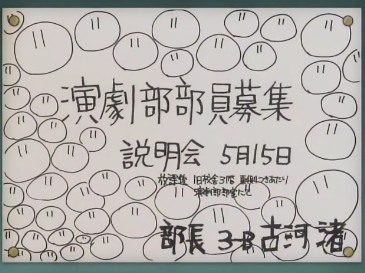 演劇部部員募集
説明会 5月15日
放課後 旧校舎3階
演劇部部室にて
部長 3-B 古河渚